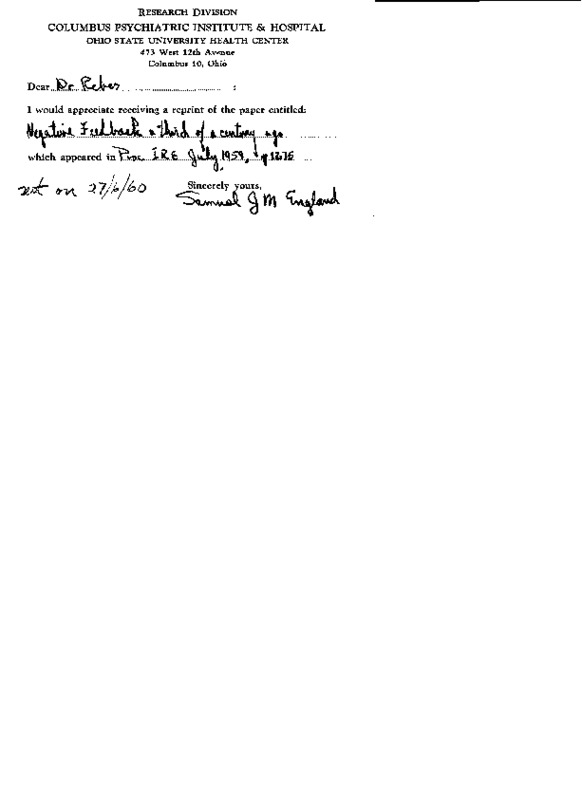 RESEARCH DIVISION
COLUMBUS PSYCHIATRIC INSTITUTE & HOSPITAL
OHIO STATE UNIVERSITY HEALTH CENTER
473 West 12th Avenue
Columbus 10, Ohio
Dear Dr Reber :
I would appreciate receiving a reprint of the paper entitled:
Negative Feedback a third of a century ago
which appeared in Proc IRE July, 1959, p 1275
sent on 27/6/60
Sincerely yours,
Samuel J M England